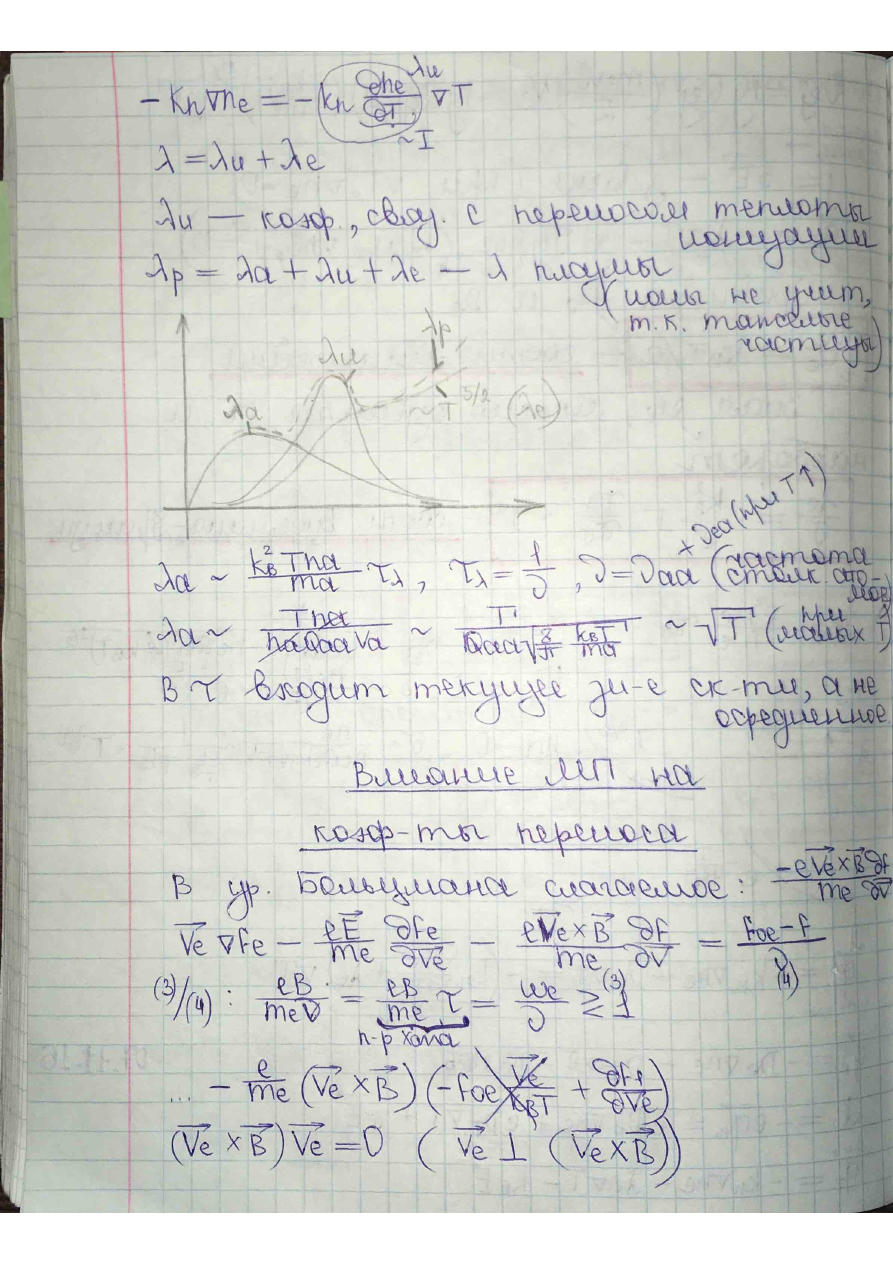 λи
-Kn∇ne = -kn ∂ne/∂T ∇T
~I
λ = λи + λe
λи — коэф., связ. с переносом теплоты
ионизации
λp = λa + λи + λe — λ плазмы
(ионы не учит,
т.к. тяжелые
частицы)
λp
λи
λa
~T^5/2 (λe)
+ νea (при T↑)
λa ~ kB² T na / ma τλ, τλ = 1/ν, ν = νaa (частота
столк ато-
мов)
λa ~ T na / na Qaa Va ~ T / Qaa √(8/π kBT/ma) ~ √T (при
малых T)
В τ входит текущее зн-е ск-ти, а не
осредненное.
Влияние МП на
коэф-ты переноса
В ур. Больцмана слагаемое: -e V⃗e×B⃗ ∂f / me ∂v
V⃗e ∇fe - eE⃗/me ∂fe/∂V⃗e - eV⃗e×B⃗/me ∂f/∂v = foe-f/ν
(3) (4)
(3)/(4): eB/meν = eB/me τ = ωe/ν ≷ 1
п-р Холла
... - e/me (V⃗e × B⃗) (-foe V⃗e/kBT + ∂f1/∂V⃗e)
(V⃗e × B⃗)V⃗e = 0 (V⃗e ⊥ (V⃗e×B⃗))